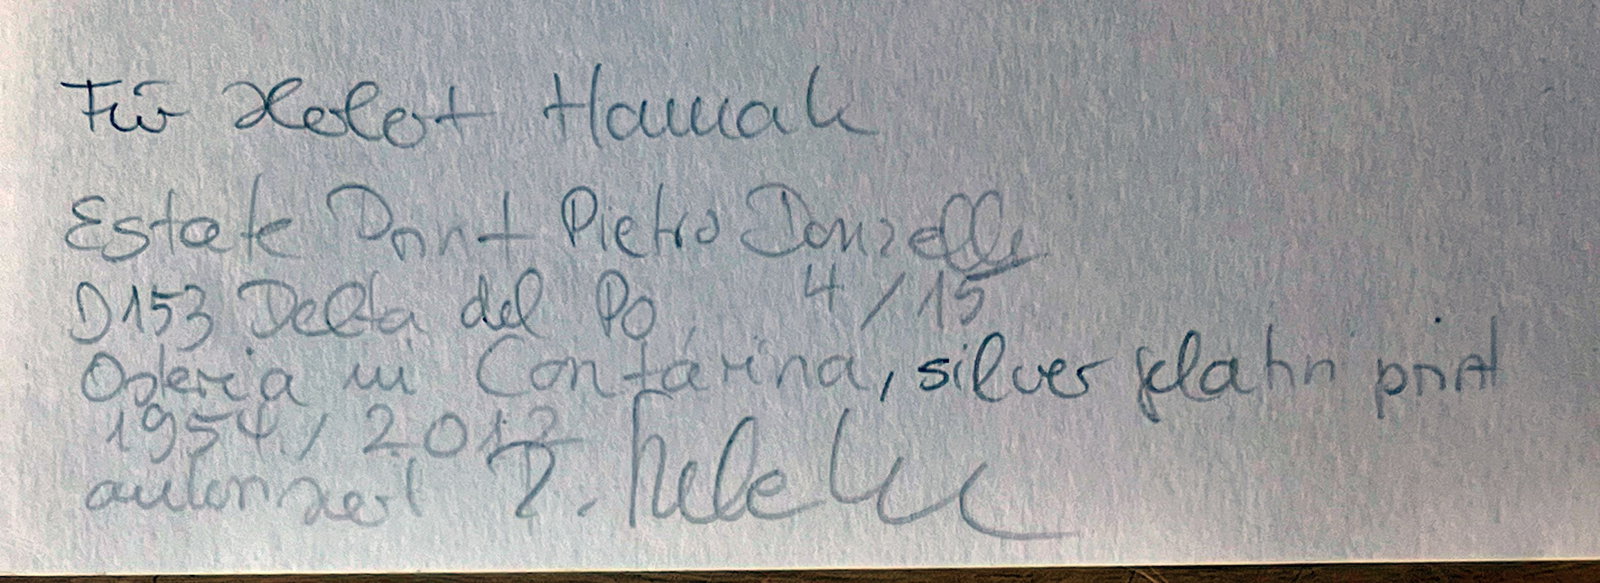 Für
Estate Print Pietro Donzelli
D153 Delta del Po 4/15
Osteria in Contarina, silver gelatin print
1954/2013
autorisiert